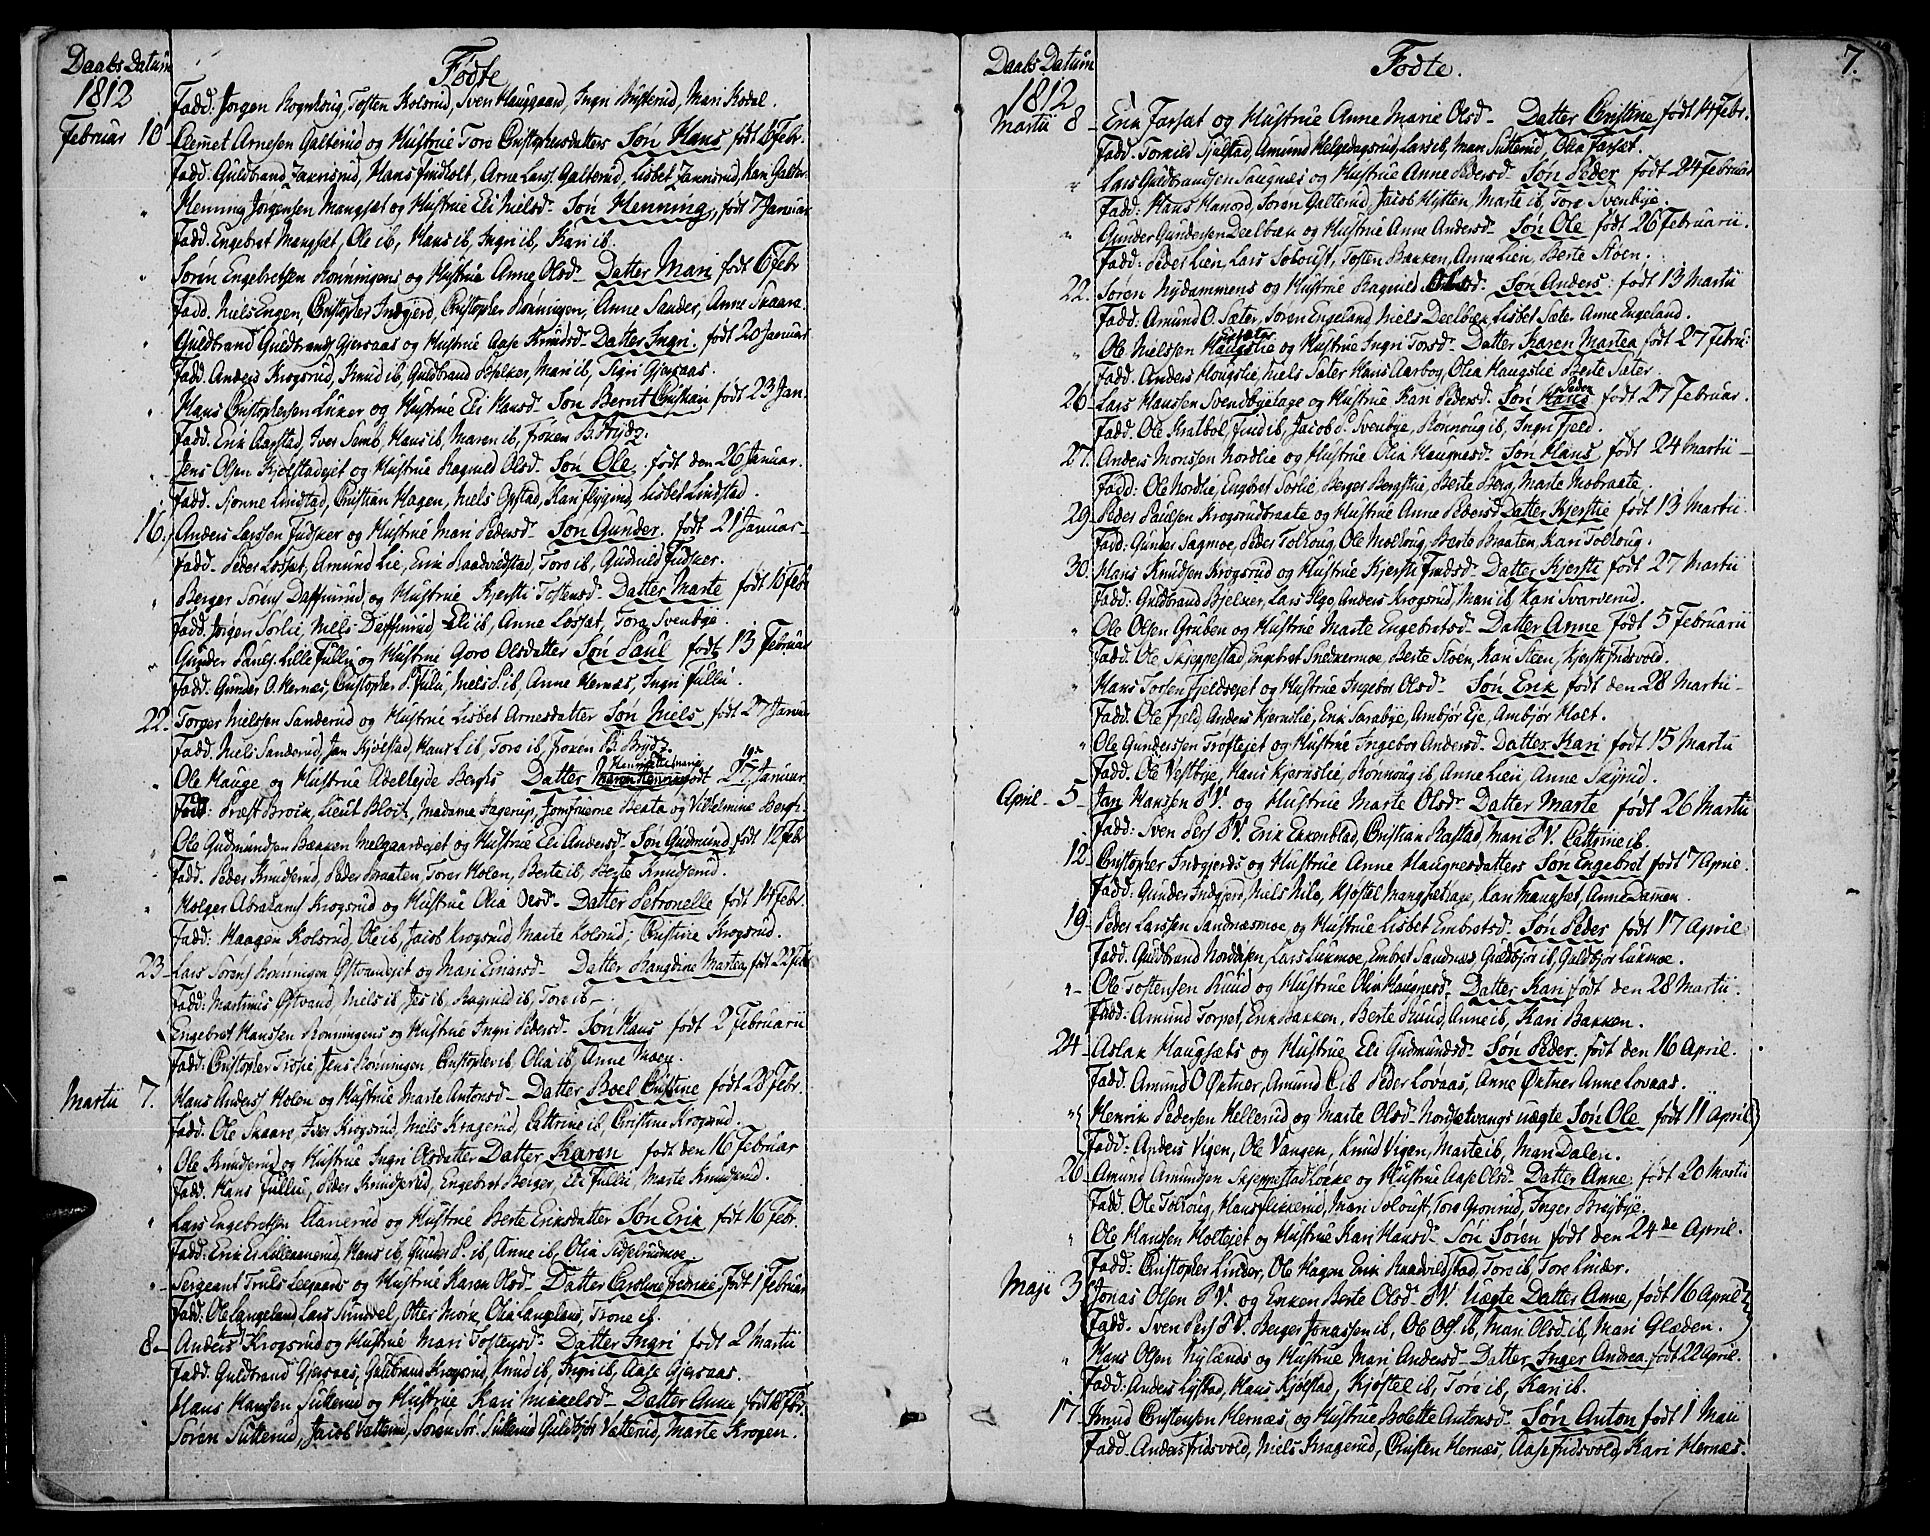 Daabs Datum
1812
Födte
Fadd. Jörgen Rognhoug, Tosten Kolsrud, Sven Hauggaard, Ingri Busterud, Mari Kodal.
Februar 10 Clemmet Arnesen Galterud og Hustrue Tore Christophersdatters Sön Hans, födt 6 Febr.
Fadd. Guldbrand Jannsrud, Hans Findholt, Arne Larss Galterud, Lisbet Jannsrud, Kari Galter.
" Henning Jorgensen Mangset og Hustrue Eli Nielsd. Sön Henning, födt 7 Januar
Fadd. Engebret Mangset, Ole ib, Hans ib, Ingri ib, Kari ib.
" Soren Engebretsen Rönningens og Hustrue Anne Olsd. Datter Mari födt 6 Febr
Fadd. Niels Engen, Christopher Indgjerd, Christopher Rönningen, Anne Sander, Anne Skaare.
" Guldbrand Guldbrands Gjersaas og Hustrue Aase Knudsd. Datter Ingri. födt 20 Januar
Fadd. Anders Krogsrud, Knud ib, Guldbrand Bjelker, Mari ib, Sigri Gjersaas.
" Hans Christophersen Luker og Hustrue Eli Hansd. Sön Bernt Christian födt 23 Jan.
Fadd: Erik Aarstad, Iver Semb, Hans ib, Maren ib, Fröken B. Brydz.
" Jens Olsen Kjolstadejet og Hustrue Ragnild Olsd. Sön Ole, födt den 26 Januar.
Fadd. Sjonne Lindstad, Christian Hagen, Niels Opstad, Kari Flygind, Lisbet Lindstad.
16. Anders Larssen Fudsker og Hustrue Mari Pedersd. Sön Gunder. födt 21 Januar
Fadd. Peder Lösset, Amund Lie, Erik Raadvildstad, Tore ib, Gudnild Fudsker.
" Berger Sörens Daffinrud og Hustrue Kjersti Tostensd. Datter Marte födt 10 Febr
Fadd. Jörgen Sorlie, Niels Daffinrud, Eli ib, Anne Lösset, Tore Svenbye.
" Gunder Pauls. Lille Fullu og Hustrue Goro Olsdatter Sön Paul födt 13 Februar
Fadd: Gunder O. Hernæs, Christopher P. Fullu, Niels P. ib, Anne Hernæs, Ingri Fullu.
22. Torger Nielssen Sanderud og Hustrue Lisbet Arnesdatter Sön Niels, födt 27 Januar
Fadd. Niels Sanderud, Jan Kjölstad, Hans L ib, Tore ib, Fröken B. Brydz.
" Ole Hauge og Hustrue Adelheyde Berghs Datter Henriette marie födt 19de Januar
Fadd: Præst Brock, Lieut Bloch, Madame Fagerup, Jomfruerne Beata og Vilhelmine Bergh.
" Ole Gudmundsen Bækken Melgaardejet og Hustrue Eli Andersd. Sön Gudmund, födt 12 Febr
Fadd. Peder Knudserud, Peder Braaten, Tores Holen, Berte ib, Berte Knudserud.
" Holger Abrahams Krogsrud og Hustrue Olia Olsd. Datter Petronelle födt 14 Febr.
Fadd: Haagen Kolsrud, Ole ib, Jacob Krogsrud, Marte Kolsrud, Christine Krogsrud.
23. Lars Sorens Ronningen Ostvandejet og Mari Einarsd. Datter Rangdine Martea, födt 22 Feb
Fadd: Martinus Ostvand, Niels ib, Jes ib, Ragnild ib, Tore ib.
" Engebret Hanssen Ronningens og Hustrue Ingri Pedersd. Sön Hans födt 2 Februarii
Fadd: Christopher Trosie, Jens Rönningen, Christopher ib, Olia ib, Anne Moey.
Martii 7. Hans Anders Holen og Hustrue Marte Antonsd. Datter Boel Christine födt 28 Febr.
Fadd. Ole Skaare, Iver Krogsrud, Niels Kragerud, Cattrine ib, Christine Krogsrud.
" Ole Knudserud og Hustrue Ingri Olsdatter Datter Karen födt den 16 Februar
Fadd. Hans Fullu, Peder Knudserud, Engebret Berger, Eli Fullu, Marte Knudserud.
" Lars Engebretsen Aanerud og Hustrue Berte Eriksdatter Sön Erik, födt 16 Febr.
Fadd: Erik Er Lilleaanerud, Hans ib, Gunder P. ib, Anne ib, Olia Sidselrudmoe.
" Sergeant Truls Leegaards og Hustrue Karen Olsd. Datter Caroline Fredrike, födt 1 Februar
Fadd. Ole Langeland, Lars Sundvel, Otter Mork, Olia Langeland, Trone ib.
8 Anders Krogsrud og Hustrue Mari Tostensd. Datter Ingri födt 2 Martii
Fadd. Guldbrand Gjersaas, Guldbrand Krogsrud, Knud ib, Ingri ib, Aase Gjersaas.
Hans Hansen Sutterud og Hustrue Kari Mikkelsd. Datter Anne födt 18 Febr.
Sören Sutterud, Jacob Vatterud, Soren Sör. Sutterud, Guldbjör Vætterud, Marte Krogen.
7.
Daabs Datum
1812
Födte.
Martii 8 Erik Farset og Hustrue Anne Marie Olsd. Datter Christine födt 14 Febr.
Fadd. Torkild Sjulstad, Amund Helgedagsrud, Lars ib, Mari Sutterud, Olia Farset.
" Lars Guldbrandsen Saugnæs og Hustrue Anne Pedersd. Sön Peder födt 24 Februar
Fadd: Hans Hanord, Soren Galterud, Jacob Hytten, Marte ib, Tore Svenbye.
" Gunder Gundersen Deelbæk og Hustrue Anne Andersd. Sön Ole födt 26 Februarii.
Fadd: Peder Lien, Lars Soloust, Tosten Bakken, Anne Lien, Berte Stoen.
22. Sören Nydammens og Hustrue Ragnild Olsd. Sön Anders. födt 13 Martii
Fadd: Amund O. Sæter, Soren Engeland, Niels Deelbæk, Lisbet Sæter Anne Engeland.
" Ole Nielssen Haugslie og Hustrue Ingri Torsd. Datter Karen Martea födt 27 Febru:
Fadd. Anders Hougslie, Niels Sæter Hans Aarbog, Olia Haugslie Berte Sæter.
26 Lars Hanssen Svendbyelage og Hustrue Kari Pedersd. Sön Peder födt 27 Februar.
Fadd. Ole Kratbol, Find ib, Jacob P. Svenbye, Rönnoug ib, Ingri Fjeld.
27. Anders Monssen Nordlie og Hustrue Olia Haugnesd. Sön Hans födt 24 Martii
Fadd: Ole Nordlie, Engbret Sorlie, Berger Bergstie, Berte Berg, Marte Mobraate.
29 Peder Paulsen Krogsrudbraate og Hustrue Anne Pedersd Datter Kjerstie födt 13 Martii
Fadd: Gunder Sagmoe, Peder Tolloug, Ole Molloug, Berte Braaten, Kari Tolloug.
30. Hans Knudsen Krogsrud og Hustrue Kjersti Findsd. Datter Kjersti födt 27 Martii
Fadd: Guldbrand Bjelker, Lars Ilgo, Anders Krogsrud, Mari ib, Kari Svarverud.
" Ole Olsen Gruben og Hustrue Marte Engebretsd. Datter Anne födt 5 Februarii
Fadd. Ole Skjeppestad, Engebret Snekermoe, Berte Stoen, Kari Steen, Kjersti Fridsvold.
" Hans Tosten Fjeldsejet og Hustrue Ingebor Olsd. Sön Erik födt den 28 Martii
Fadd. Ole Fjeld, Anders Kjernslie, Erik Sarabye, Ambjör Eje, Ambjör Holt.
" Ole Gunderssen Tröftejet og Hustrue Ingebor Andersd. Datter Kari födt 15 Martii
Fadd. Ole Vestbye, Hans Kjernslie, Rönnoug ib, Anne Lien, Anne Skyrud.
April 5 Jan Hanssen P.V. og Hustrue Marte Olsd. Datter Marte födt 26 Martii
Fadd: Sven Pers P.V. Erik Ekkenblad, Christian Rastad, Mari P.V. Cattrine ib.
12 Christopher Indgjerds og Hustrue Anne Haugnesdatters Sön Engebret födt 7 April.
Fadd: Gunder Indgjerd, Niels Nilo, Kjöstel Mangsetlage, Kari Mangset, Anne Dammen.
19 Peder Larssen Sandnæsmoe og Hustrue Lisbet Embretsd. Sön Peder födt 17 April
Fadd: Guldbrand Nordden, Lars Lukmoe, Embret Sandnæs Guldbjör ib, Guldbjör Lukmoe.
" Ole Tostensen Ruud og Hustrue Olia Haugnesd. Datter Kari födt den 28 Martii.
Fadd: Amund Torpet, Erik Bakken, Berte Ruud, Anne ib, Kari Bakken.
24 Aslak Haugsæts og Hustrue Eli Gudmundsd. Sön Peder. födt den 16 April.
Fadd. Amund O Öxtner, Amund C ib Peder Lovaas, Anne Öxtner Anne Lovaas.
" Henrik Pedersen Hellerud og Marte Olsd. Nordsetvangs uægte Sön Ole födt 11 April
Fadd: Anders Vigen, Ole Vangen, Knud Vigen, Marte ib, Mari Dalen.
26 Amund Amundsen Skjeppestad Lokke og Hustrue Aase Olsd. Datter Anne födt 20 Martii
Fadd. Ole Tolloug, Hans Flikkerud, Mari Soloust, Tore Gronrud, Inger Brejbye.
" Ole Hanssen Holtejet og Hustrue Kari Hansd. Sön Sören födt den 24de April.
Fadd: Christopher Linder, Ole Hagen Erik Raadvildstad, Tore ib, Tore Linder.
Maji 3 Jonas Olsen P.V. og Enken Berte Olsd. P.V. Uægte Datter Anne, födt 16 April
Fadd. Sven Pers P.V. Berger Jonassen ib, Ole Ols. ib, Mari Olsd. ib, Mari Glæden.
" Hans Olsen Nylænds og Hustrue Mari Andersd. Datter Inger Andrea, födt 22 April.
Fadd: Anders Lystad, Hans Kjölstad, Kjöstel ib, Tore ib, Kari ib.
17. Knud Christensen Hernæs, og Hustrue Bolette Antonsd. Sön Anton födt 1 Maii
Fadd. Anders Fridsvold, Niels Kragerud, Christen Hernæs, Aase Fridsvold, Kari Hernæs.